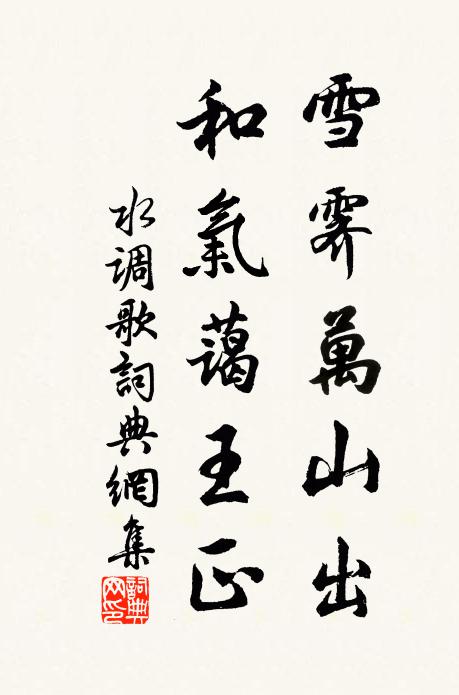 雪霽萬山出
和氣藹王正
水调歌詞典網集
詞典网印